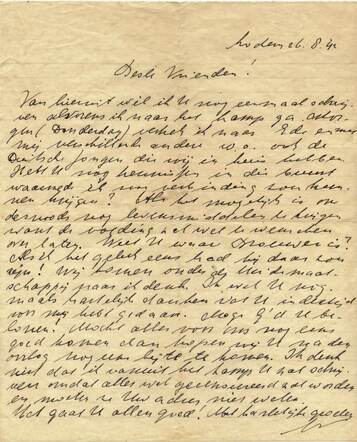 26.8.42
Beste Vrienden!
Van hieruit wil ik U nog eenmaal schrij-
ven alvorens ik naar het kamp ga. Mor-
gen (Donderdag) vertrek ik naar Ede en met
mij verschillende andere w.o. ook de
Duitsche jongen die wij in huis hebben.
Hebt U nog kennissen in die buurt
waarmede ik in verbinding zou kun-
nen krijgen? Als het mogelijk is om
levensmiddelen te krijgen
want de voeding zal wel te wenschen
over laten. Weet U waar Brouwer is?
Als U het geluk eens had bij daar
zijn! Wij komen onder de Heidemaat-
schappij naar ik denk. Ik wil U nog-
maals hartelijk danken wat U indertijd
voor mij hebt gedaan. Moge G'd U be-
lonen! Mocht alles voor ons nog eens
goed komen dan hopen wij U na den
oorlog nog een bezoek te komen. Ik denk
niet dat ik vanuit het kamp U zal schrij-
ven omdat alles wel gecensureerd zal worden
en moeten ze Uw adres niet weten.
Het gaat U allen goed! Met hartelijke groeten